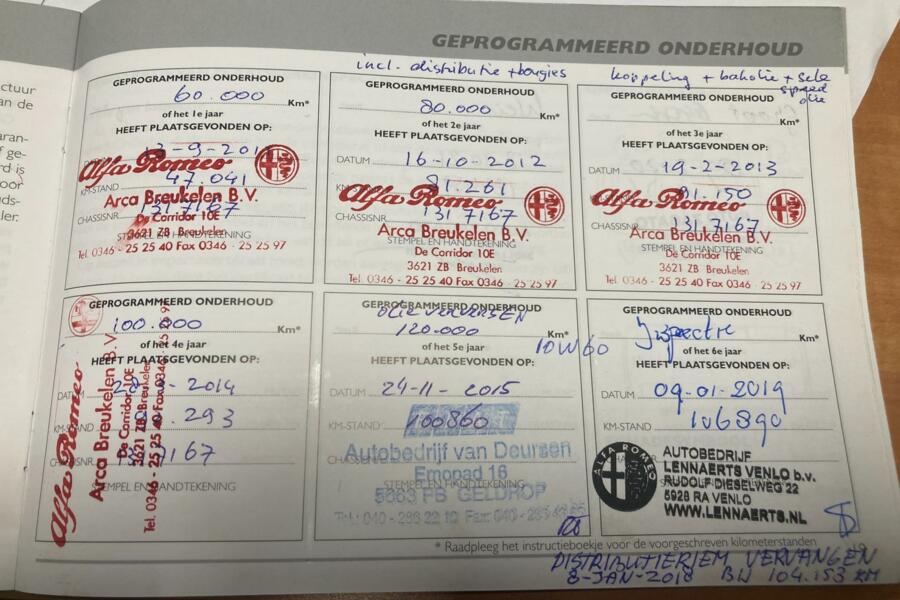 GEPROGRAMMEERD ONDERHOUD
ctuur
an de
aran-
f ge-
rd is
oor
uds-
ler.
GEPROGRAMMEERD ONDERHOUD
60.000 Km*
of het 1e jaar
HEEFT PLAATSGEVONDEN OP:
KM-STAND 47.041
1317167
STEMPEL EN HANDTEKENING
Alfa Romeo
Arca Breukelen B.V.
De Corridor 10E
3621 ZB Breukelen
Tel. 0346 - 25 25 40 Fax 0346 - 25 25 97
incl. distributie + bougies
GEPROGRAMMEERD ONDERHOUD
80.000 Km*
of het 2e jaar
HEEFT PLAATSGEVONDEN OP:
DATUM 16-10-2012
81.261
CHASSISNR. 1317167
STEMPEL EN HANDTEKENING
Alfa Romeo
Arca Breukelen B.V.
De Corridor 10E
3621 ZB Breukelen
Tel. 0346 - 25 25 40 Fax 0346 - 25 25 97
koppeling + bakolie + sele
speed
olie
GEPROGRAMMEERD ONDERHOUD
Km*
of het 3e jaar
HEEFT PLAATSGEVONDEN OP:
DATUM 19-2-2013
91.150
CHASSISNR. 1317167
STEMPEL EN HANDTEKENING
Alfa Romeo
Arca Breukelen B.V.
De Corridor 10E
3621 ZB Breukelen
Tel. 0346 - 25 25 40 Fax 0346 - 25 25 97
GEPROGRAMMEERD ONDERHOUD
100.000 Km*
of het 4e jaar
HEEFT PLAATSGEVONDEN OP:
DATUM 2014
KM-STAND 293
167
STEMPEL EN HANDTEKENING
Alfa Romeo
Arca Breukelen B.V.
De Corridor 10E
3621 ZB Breukelen
Tel. 0346 25 25 40 Fax 0346
GEPROGRAMMEERD ONDERHOUD
OLIE VERVERSEN
120.000 Km*
of het 5e jaar
10W60
HEEFT PLAATSGEVONDEN OP:
DATUM 24-11-2015
KM-STAND 100860
Autobedrijf van Deursen
Emopad 16
STEMPEL EN HANDTEKENING
5663 PB GELDROP
GEPROGRAMMEERD ONDERHOUD
Inspectie Km*
of het 6e jaar
HEEFT PLAATSGEVONDEN OP:
DATUM 09-01-2019
KM-STAND 106890
ALFA ROMEO
AUTOBEDRIJF
LENNAERTS VENLO b.v.
RUDOLF DIESELWEG 22
5928 RA VENLO
WWW.LENNAERTS.NL
* Raadpleeg het instructieboekje voor de voorgeschreven kilometerstanden
DISTRIBUTIERIEM VERVANGEN
8-JAN-2018 BIJ 104.153 KM